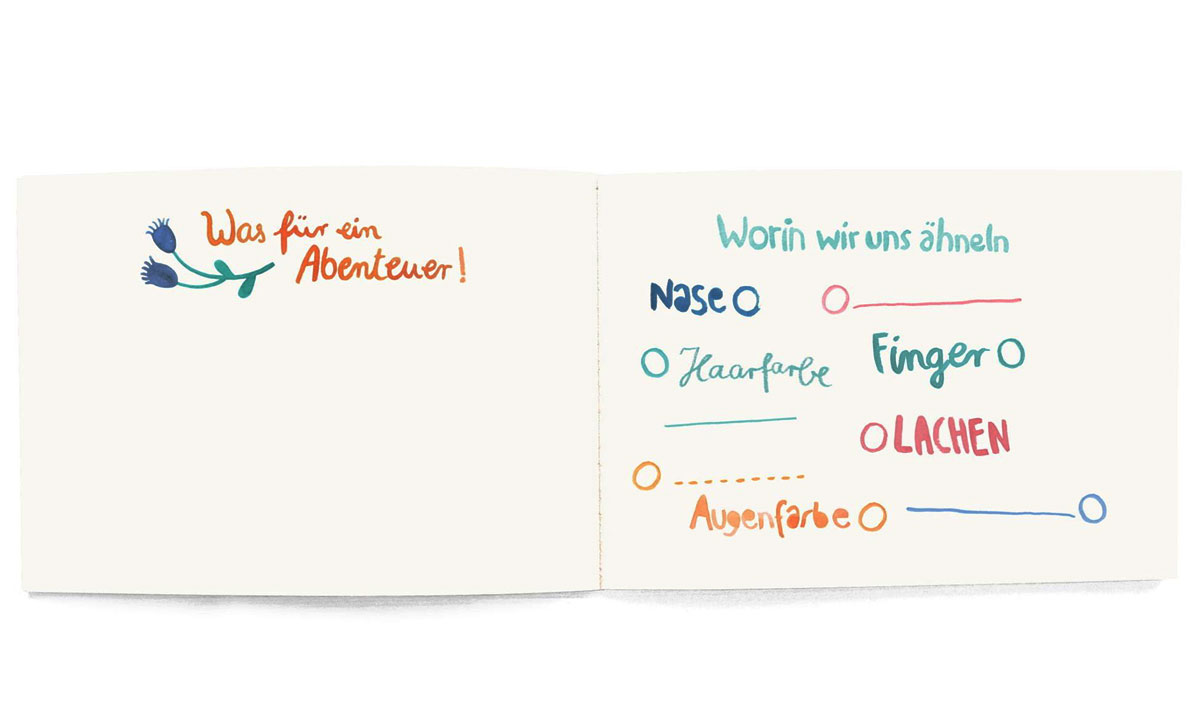 Was für ein
Abenteuer!
Worin wir uns ähneln
Nase
Haarfarbe
Finger
LACHEN
Augenfarbe